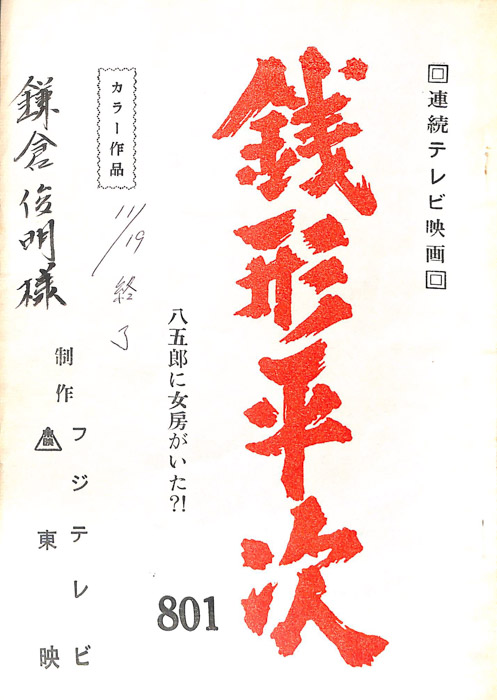 回連続テレビ映画回
銭形平次
八五郎に女房がいた?!
801
カラー作品
11/19 終了
鎌倉俊明様
制作
フジテレビ
東映